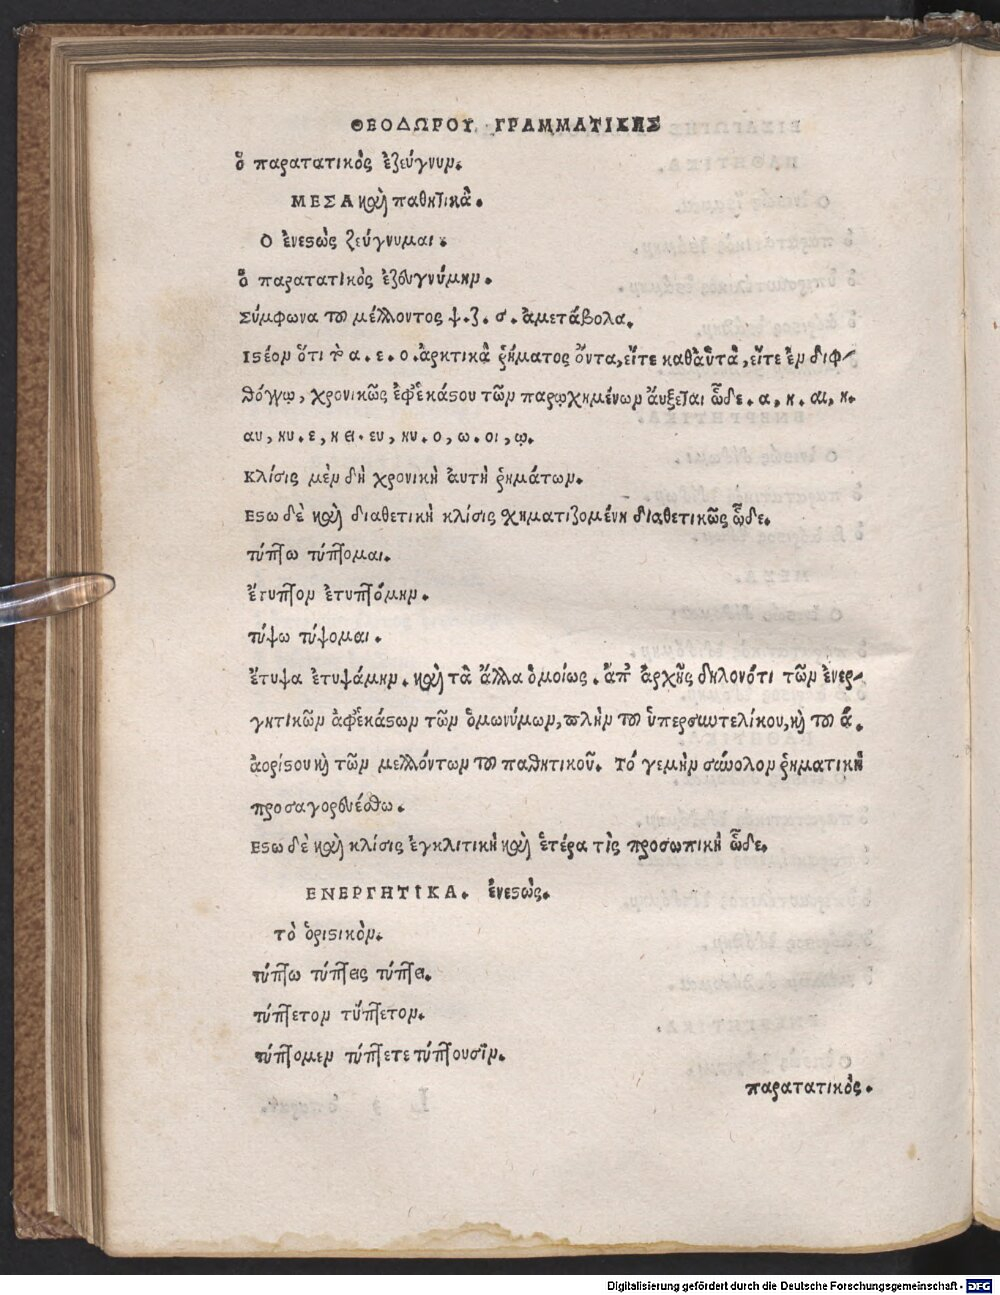 ΘΕΟΔΩΡΟΥ ΓΡΑΜΜΑΤΙΚΗΣ
ὁ παρατατικὸς ἐζεύγνυν.
ΜΕΣΑ καὶ παθητικὰ.
Ο ἐνεστὼς ζεύγνυμαι.
ὁ παρατατικὸς ἐζευγνύμην.
Σύμφωνα τοῦ μέλλοντος ψ. ξ. σ. ἀμετάβολα.
Ιστέον ὅτι τὸ α. ε. ο. ἀρκτικὰ ῥήματος ὄντα, εἴτε καθ᾽ αὑτὰ, εἴτε ἐν διφ-
θόγγῳ, χρονικῶς ἐφ᾽ ἑκάστου τῶν παρῳχημένων ἄυξεται ὧδε. α, η. αι, η.
αυ, ηυ. ε, η ει. ευ, ηυ. ο, ω. οι, ῳ.
Κλίσις μὲν δὴ χρονικὴ ἀυτὴ ῥημάτων.
Εστω δὲ καὶ διαθετικὴ κλίσις σχηματιζομένη διαθετικῶς ὧδε.
τύπτω τύπτομαι.
ἔτυπτον ἐτυπτόμην.
τύψω τύψομαι.
ἔτυψα ἐτυψάμην. καὶ τὰ ἄλλα ὁμοίως. ἀπ᾽ ἀρχῆς δηλονότι τῶν ἐνερ-
γητικῶν ἀφ᾽ ἑκάστων τῶν ὁμωνύμων, πλὴν τοῦ ὑπερσυντελίκου, καὶ τοῦ ά.
ἀορίστου καὶ τῶν μελλόντων τοῦ παθητικοῦ. Τό γε μὴν σύνολον ῥηματικὴ
προσαγορευέσθω.
Εστω δὲ καὶ κλίσις ἐγκλιτικὴ καὶ ἑτέρα τὶς προσωπικὴ ὧδε.
ΕΝΕΡΓΗΤΙΚΑ. ἐνεστὼς.
τὸ ὁριστικὸν.
τύπτω τύπτεις τύπτει.
τύπτετον τύπτετον.
τύπτομεν τύπτετε τύπτουσιν.
παρατατικὸς.
Digitalisierung gefördert durch die Deutsche Forschungsgemeinschaft - DFG